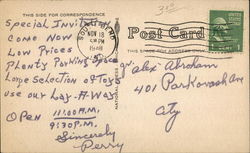 THIS SIDE FOR CORRESPONDENCE
Special Invitation
Come Now
Low Prices
Plenty Parking Space
Large Selection of Toys
Use our Lay-A-Way
OPEN 11:00 A.M.
9:30 P.M.
Sincerely
Perry
NOV 18
PM
1948
Post Card
THIS SPACE FOR ADDRESS
Alex Abraham
401 Parkovash Ave
City